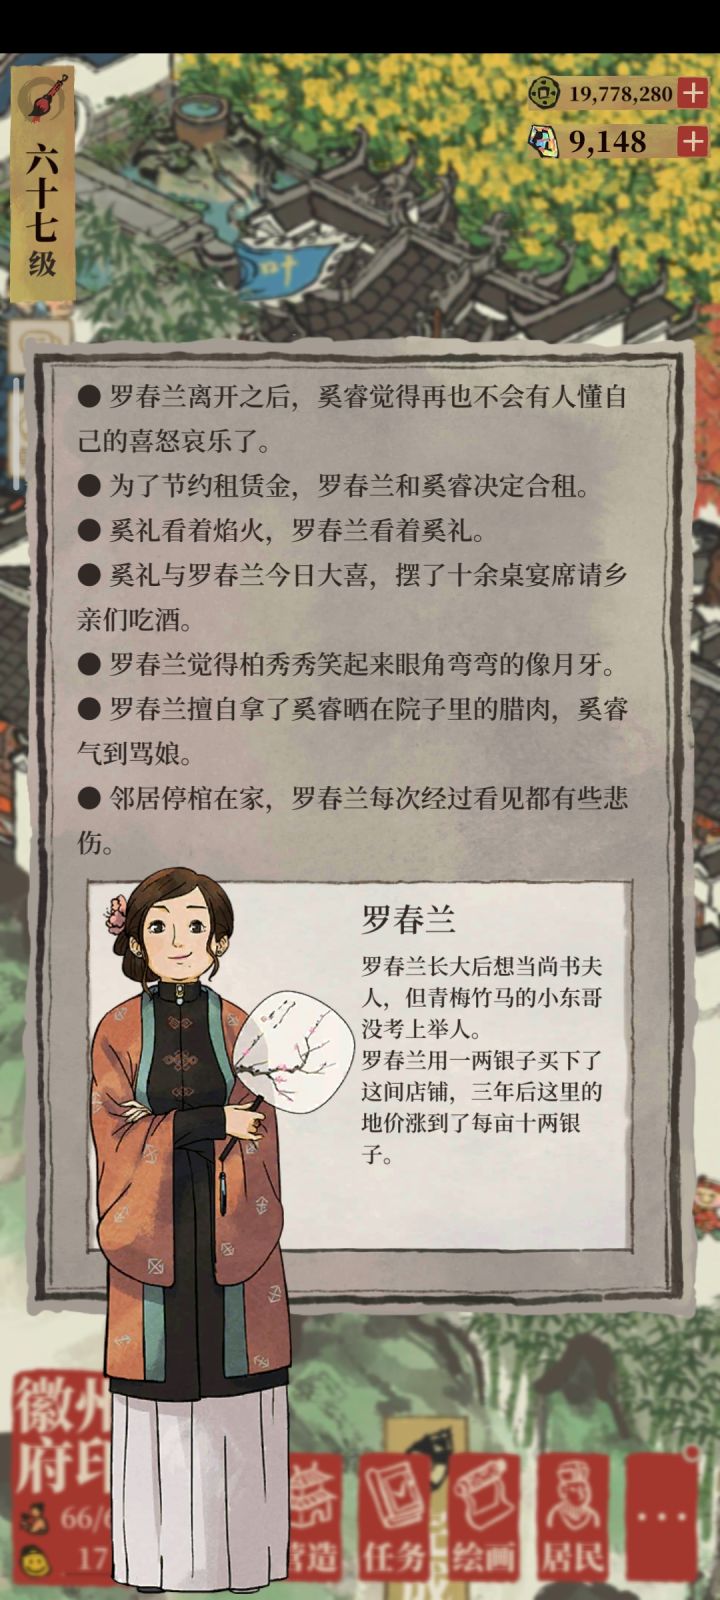 19,778,280
9,148
六十七级
叶
● 罗春兰离开之后，奚睿觉得再也不会有人懂自
己的喜怒哀乐了。
● 为了节约租赁金，罗春兰和奚睿决定合租。
● 奚礼看着焰火，罗春兰看着奚礼。
● 奚礼与罗春兰今日大喜，摆了十余桌宴席请乡
亲们吃酒。
● 罗春兰觉得柏秀秀笑起来眼角弯弯的像月牙。
● 罗春兰擅自拿了奚睿晒在院子里的腊肉，奚睿
气到骂娘。
● 邻居停棺在家，罗春兰每次经过看见都有些悲
伤。
罗春兰
罗春兰长大后想当尚书夫
人，但青梅竹马的小东哥
没考上举人。
罗春兰用一两银子买下了
这间店铺，三年后这里的
地价涨到了每亩十两银
子。
徽州
府印
66/
17
营造
任务
绘画
居民